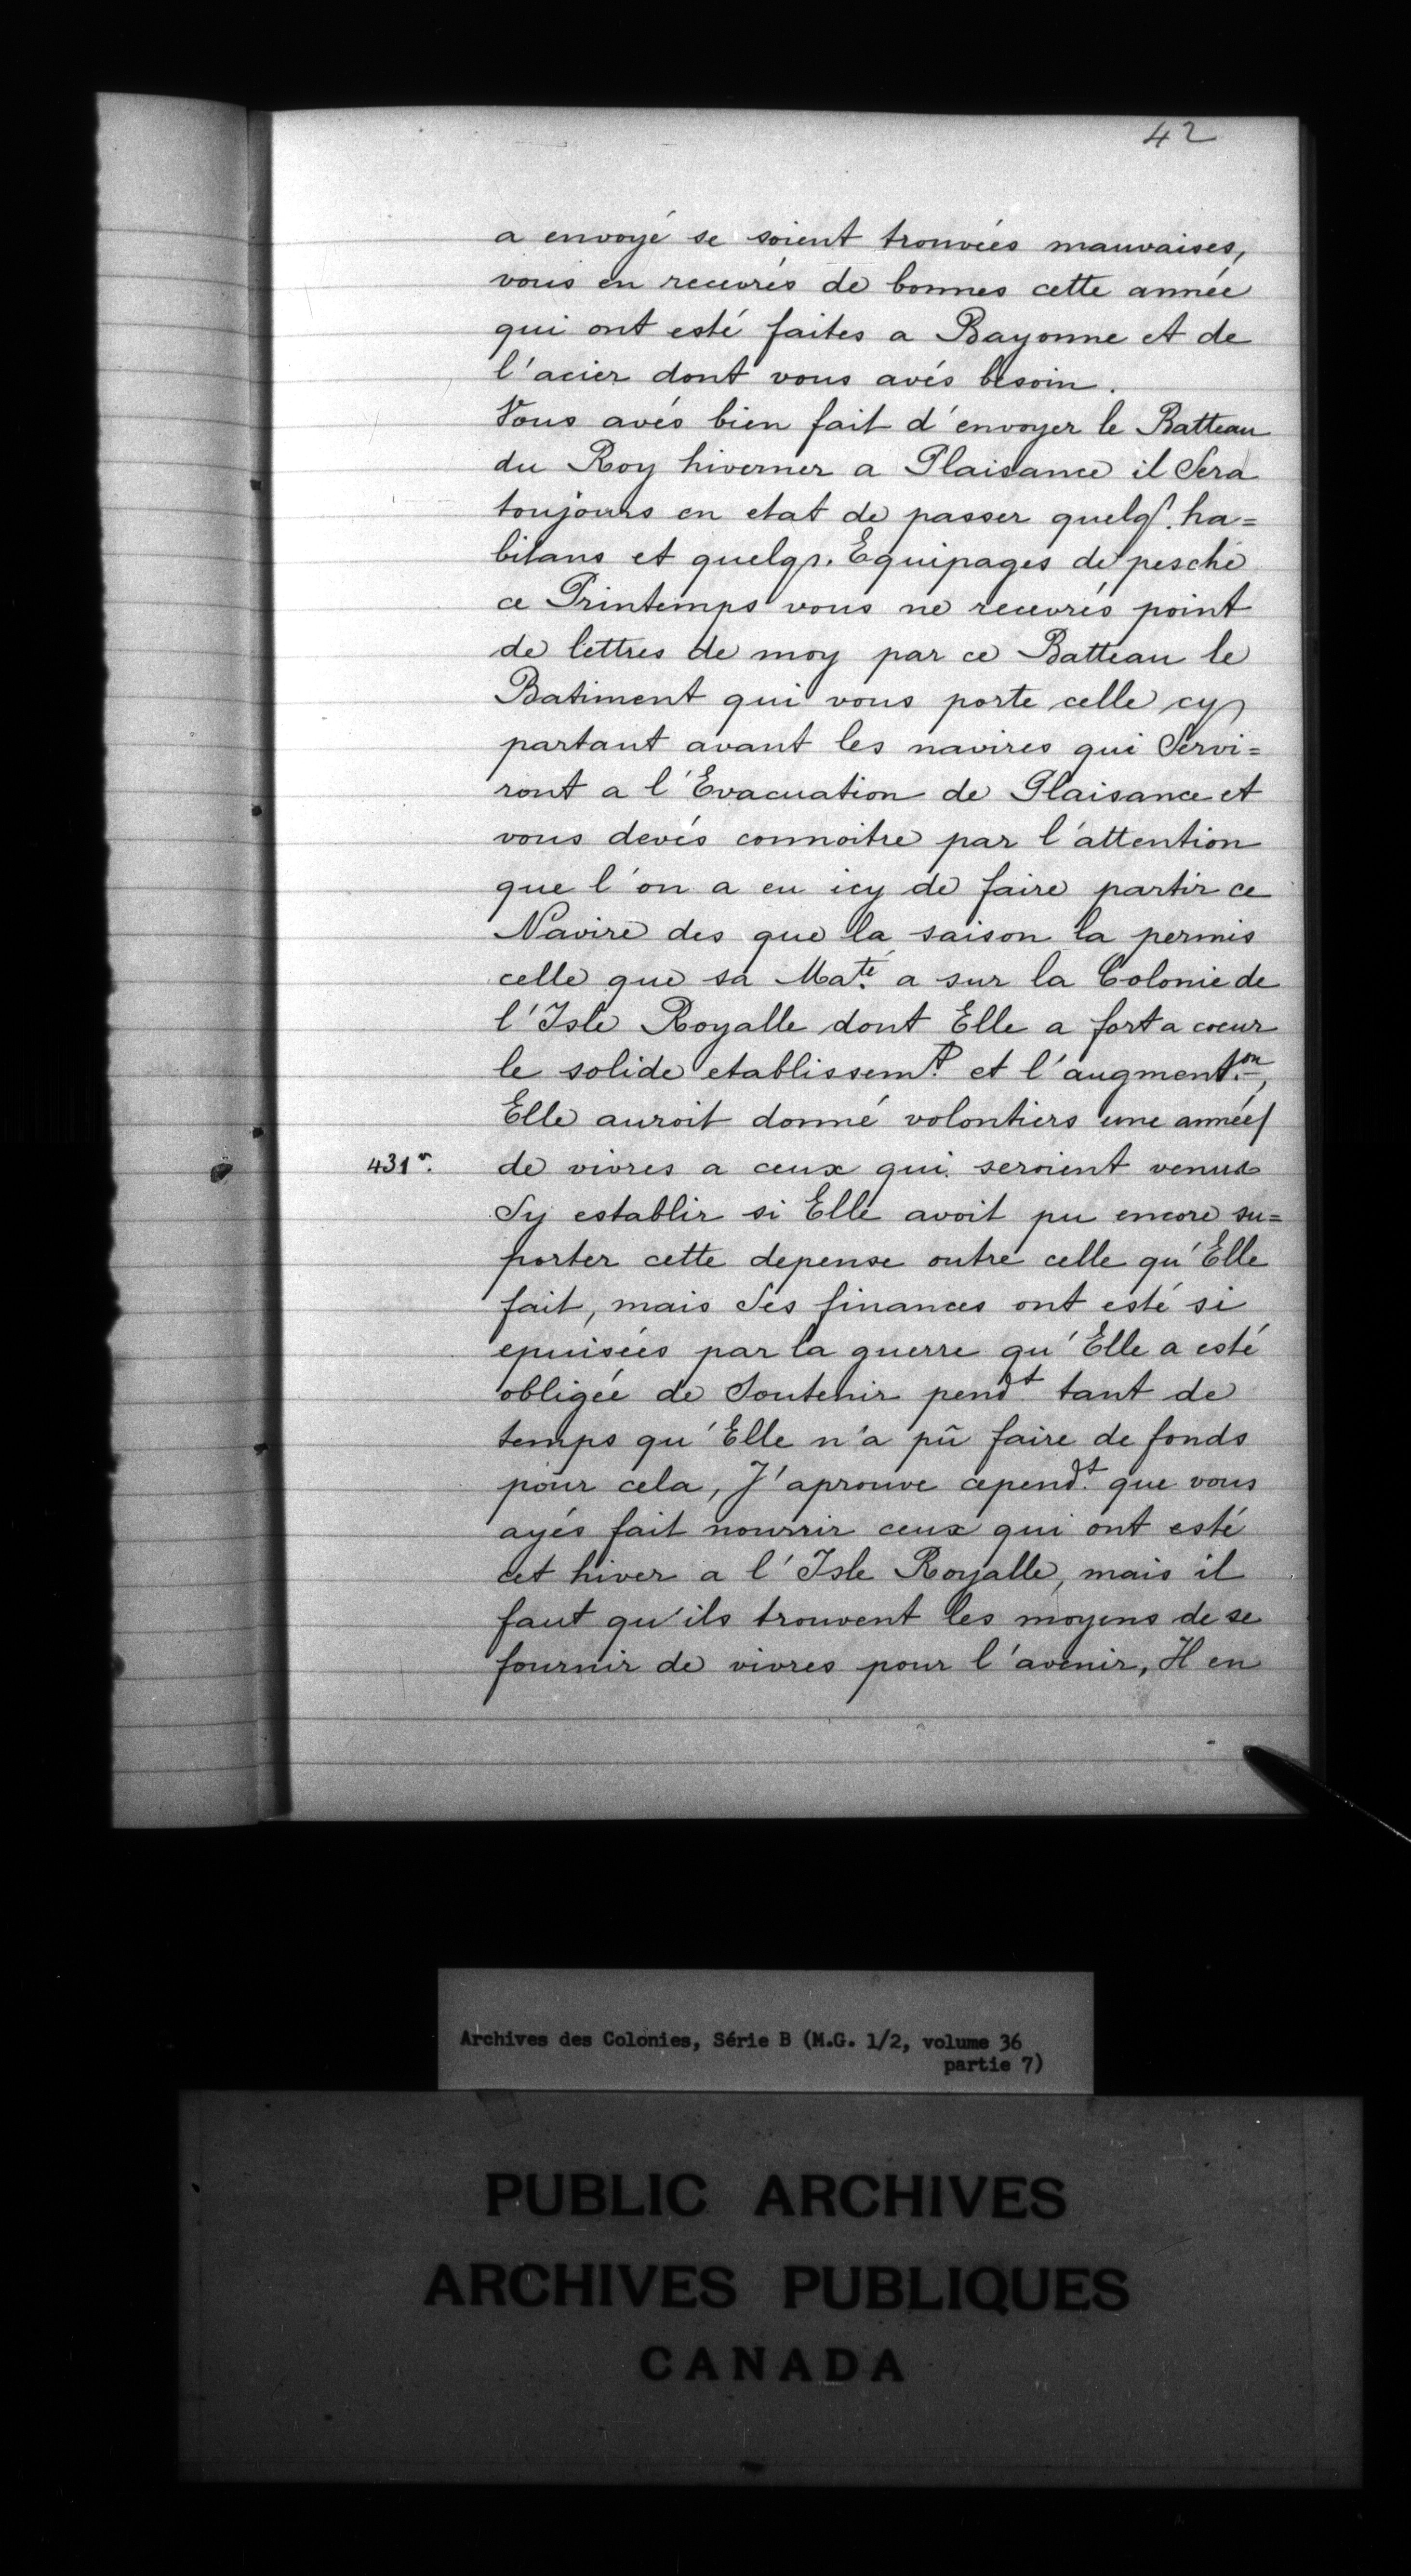 42
a envoyé se soient trouvées mauvaises,
vous en recevrés de bonnes cette année
qui ont esté faites a Bayonne et de
l'acier dont vous avés besoin.
Vous avés bien fait d'envoyer le Batteau
du Roy hiverner a Plaisance il Sera
toujours en etat de passer quelqs. ha=
bitans et quelqs. Equipages de pesche
ce Printemps vous ne recevrés point
de lettres de moy par ce Batteau le
Batiment qui vous porte celle cy
partant avant les navires qui Servi=
ront a l'Evacuation de Plaisance et
vous devés connoitre par l'attention
que l'on a eu icy de faire partir ce
Navire des que la saison la permis
celle que sa Maté. a sur la Colonie de
l'Isle Royalle dont Elle a fort a coeur
le solide etablissemt. et l'augmenton.,
Elle auroit donné volontiers une année/
431 r. de vivres a ceux qui seroient venus
Sy establir si Elle avoit pu encore su=
porter cette depense outre celle qu'Elle
fait, mais Ses finances ont esté si
epuisées par la guerre qu'Elle a esté
obligée de Soutenir pendt tant de
temps qu'Elle n'a pû faire de fonds
pour cela, J'aprouve cependt. que vous
ayés fait nourrir ceux qui ont esté
cet hiver a l'Isle Royalle, mais il
faut qu'ils trouvent les moyens de se
fournir de vivres pour l'avenir, Il en
Archives des Colonies, Série B (M.G. 1/2, volume 36
partie 7)
PUBLIC ARCHIVES
ARCHIVES PUBLIQUES
CANADA